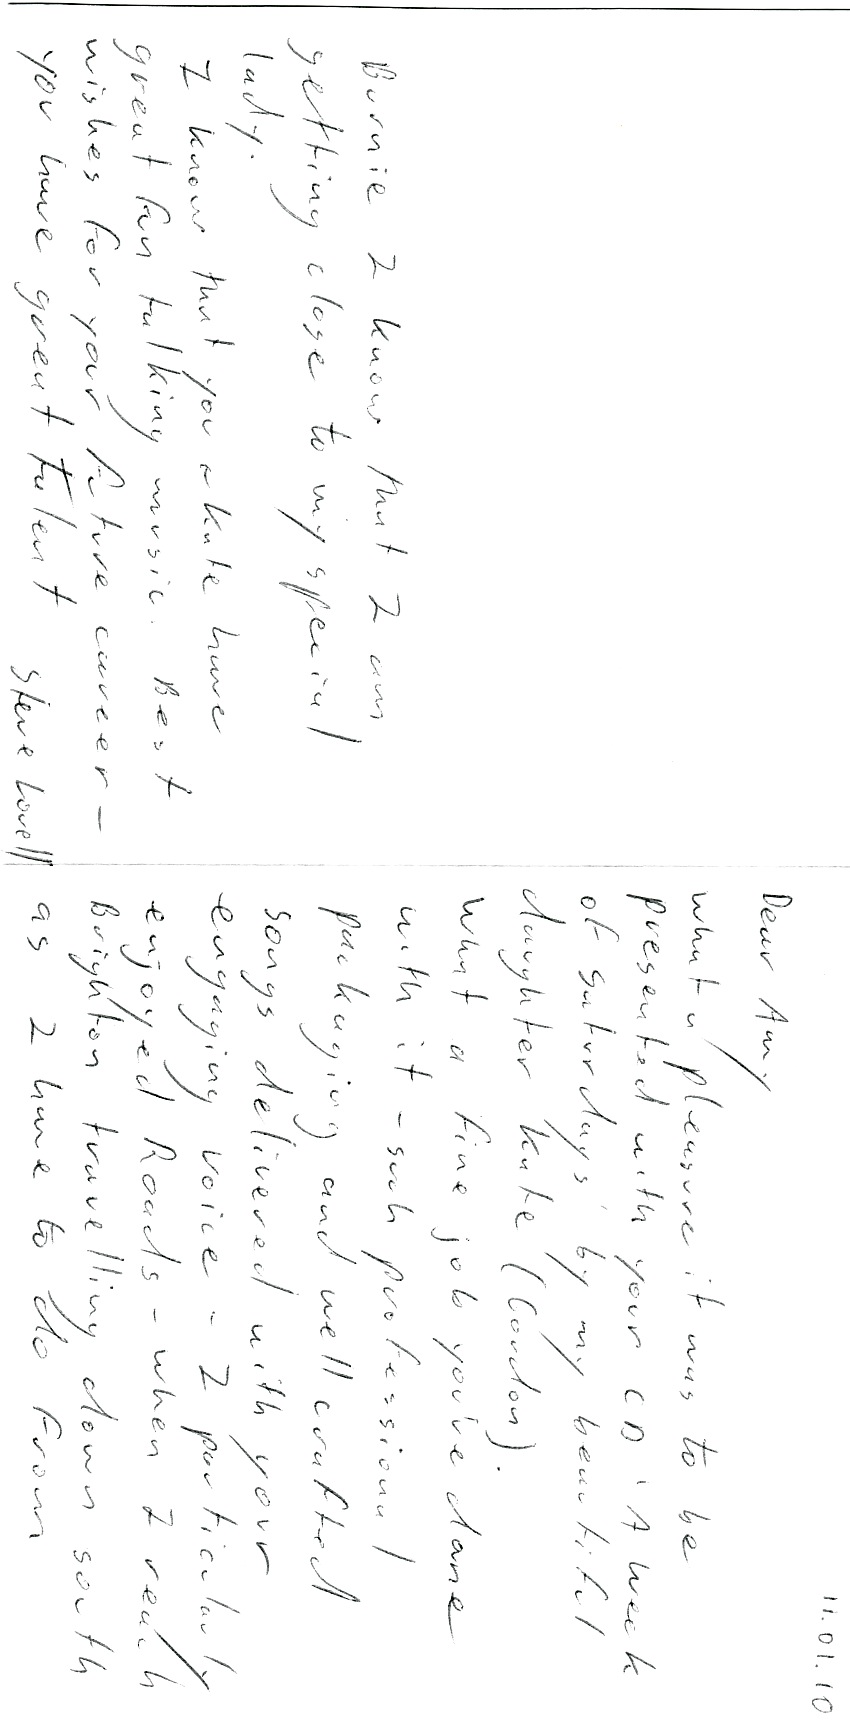 11.01.10
Dear Amy
what a pleasure it was to be
presented with your CD 'A week
of Saturdays' by my beautiful
daughter Kate (London).
What a fine job you've done
with it - such professional
packaging and well crafted
songs delivered with your
engaging voice - I particularly
enjoyed Roads - when I reach
Brighton travelling down south
as I have to do from
Burnie I know that I am
getting close to my special
lady.
I know that you & Kate have
great fun talking music. Best
wishes for your future career -
you have great talent Steve Lovell